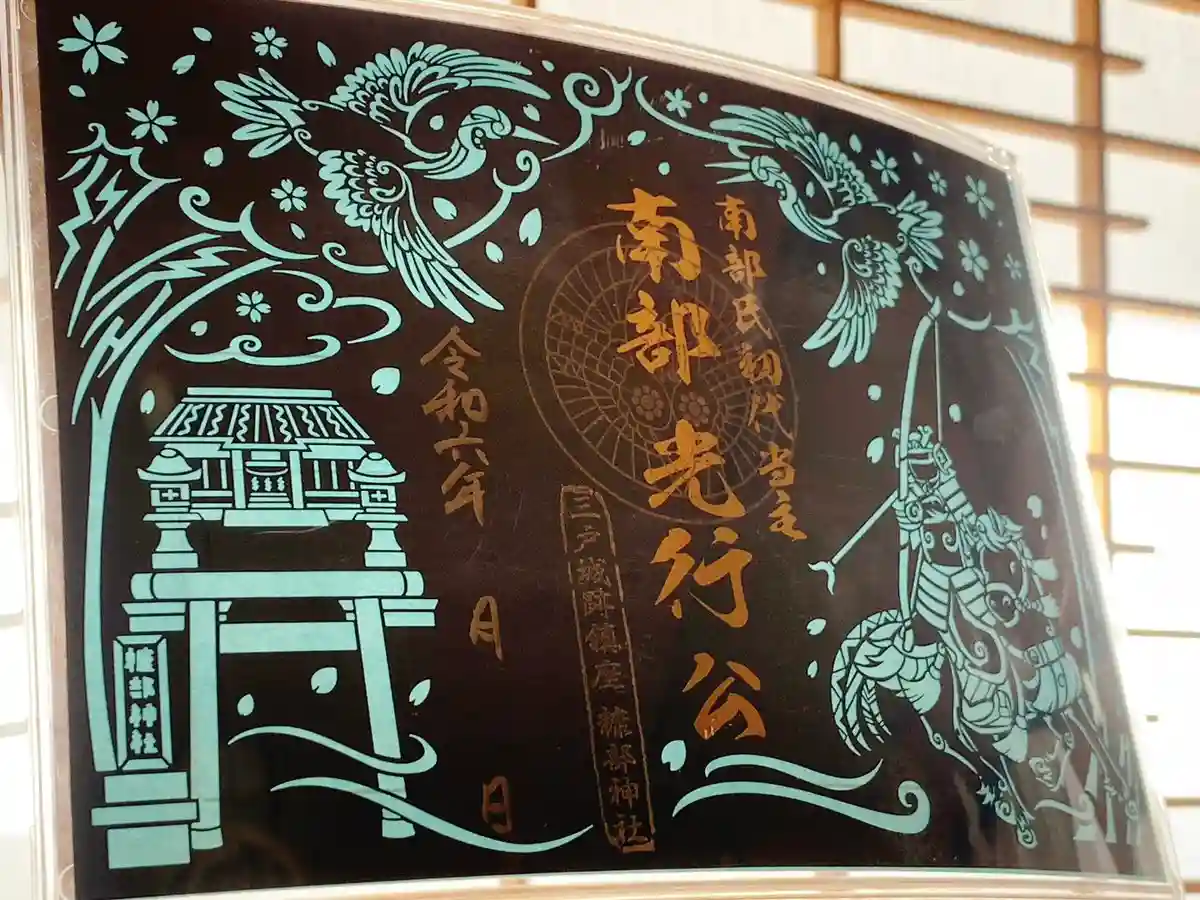 南部氏初代当主
南部光行公
三戸城跡鎮座 糠部神社
令和六年 月 日
糠部神社